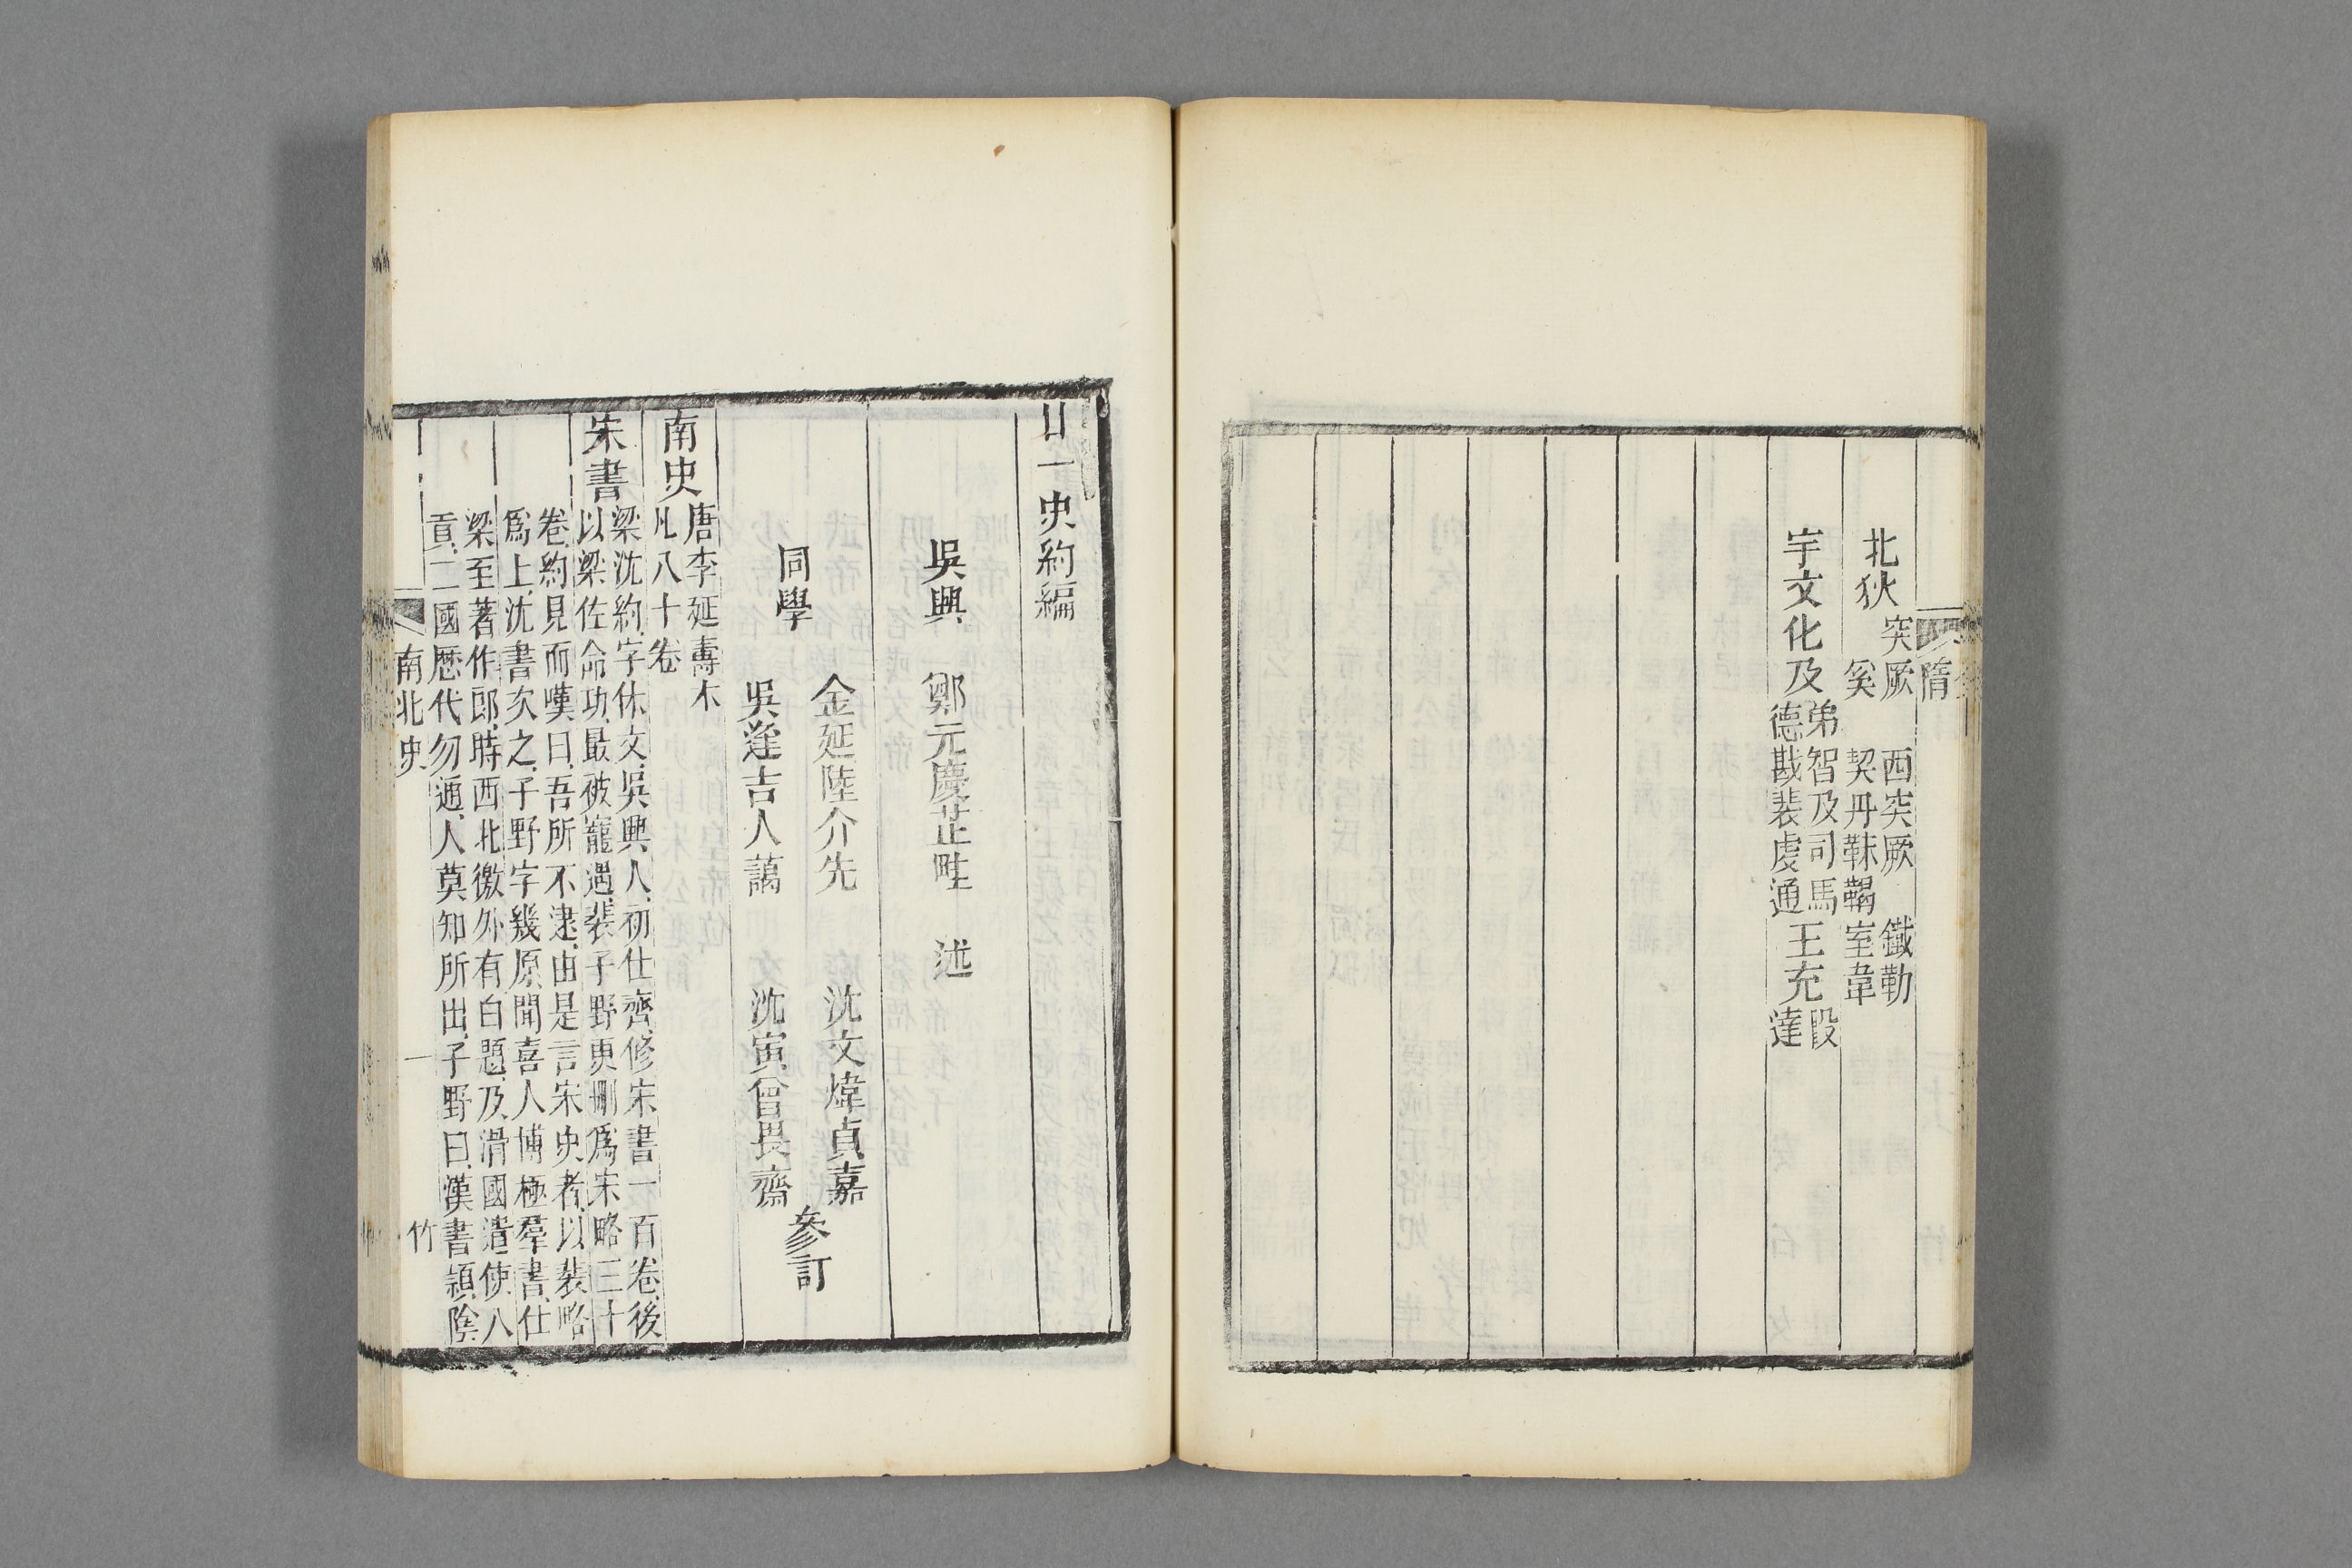 隋
北狄
突厥　西突厥　鐵勒
奚　契丹　靺鞨　室韋
宇文化及
弟智及　司馬
德戡　裴虔通
王充
段
達
廿一史約編
吳興　鄭元慶芷畦　述
同學
金延陸介先　沈文煒貞嘉
吳逢吉人藹　沈寅曾畏齋
參訂
南史
唐李延壽木
凡八十卷
宋書
梁沈約字休文吳興人初仕齊修宋書一百卷後
以梁佐命功最被寵遇裴子野更刪爲宋略三十
卷約見而嘆曰吾所不逮由是言宋史者以裴略
爲上沈書次之子野字幾原聞喜人博極羣書仕
梁至著作郎時西北徼外有白題及滑國遣使入
貢二國歷代勿通人莫知所出子野曰漢書潁陰
南北史　一　竹